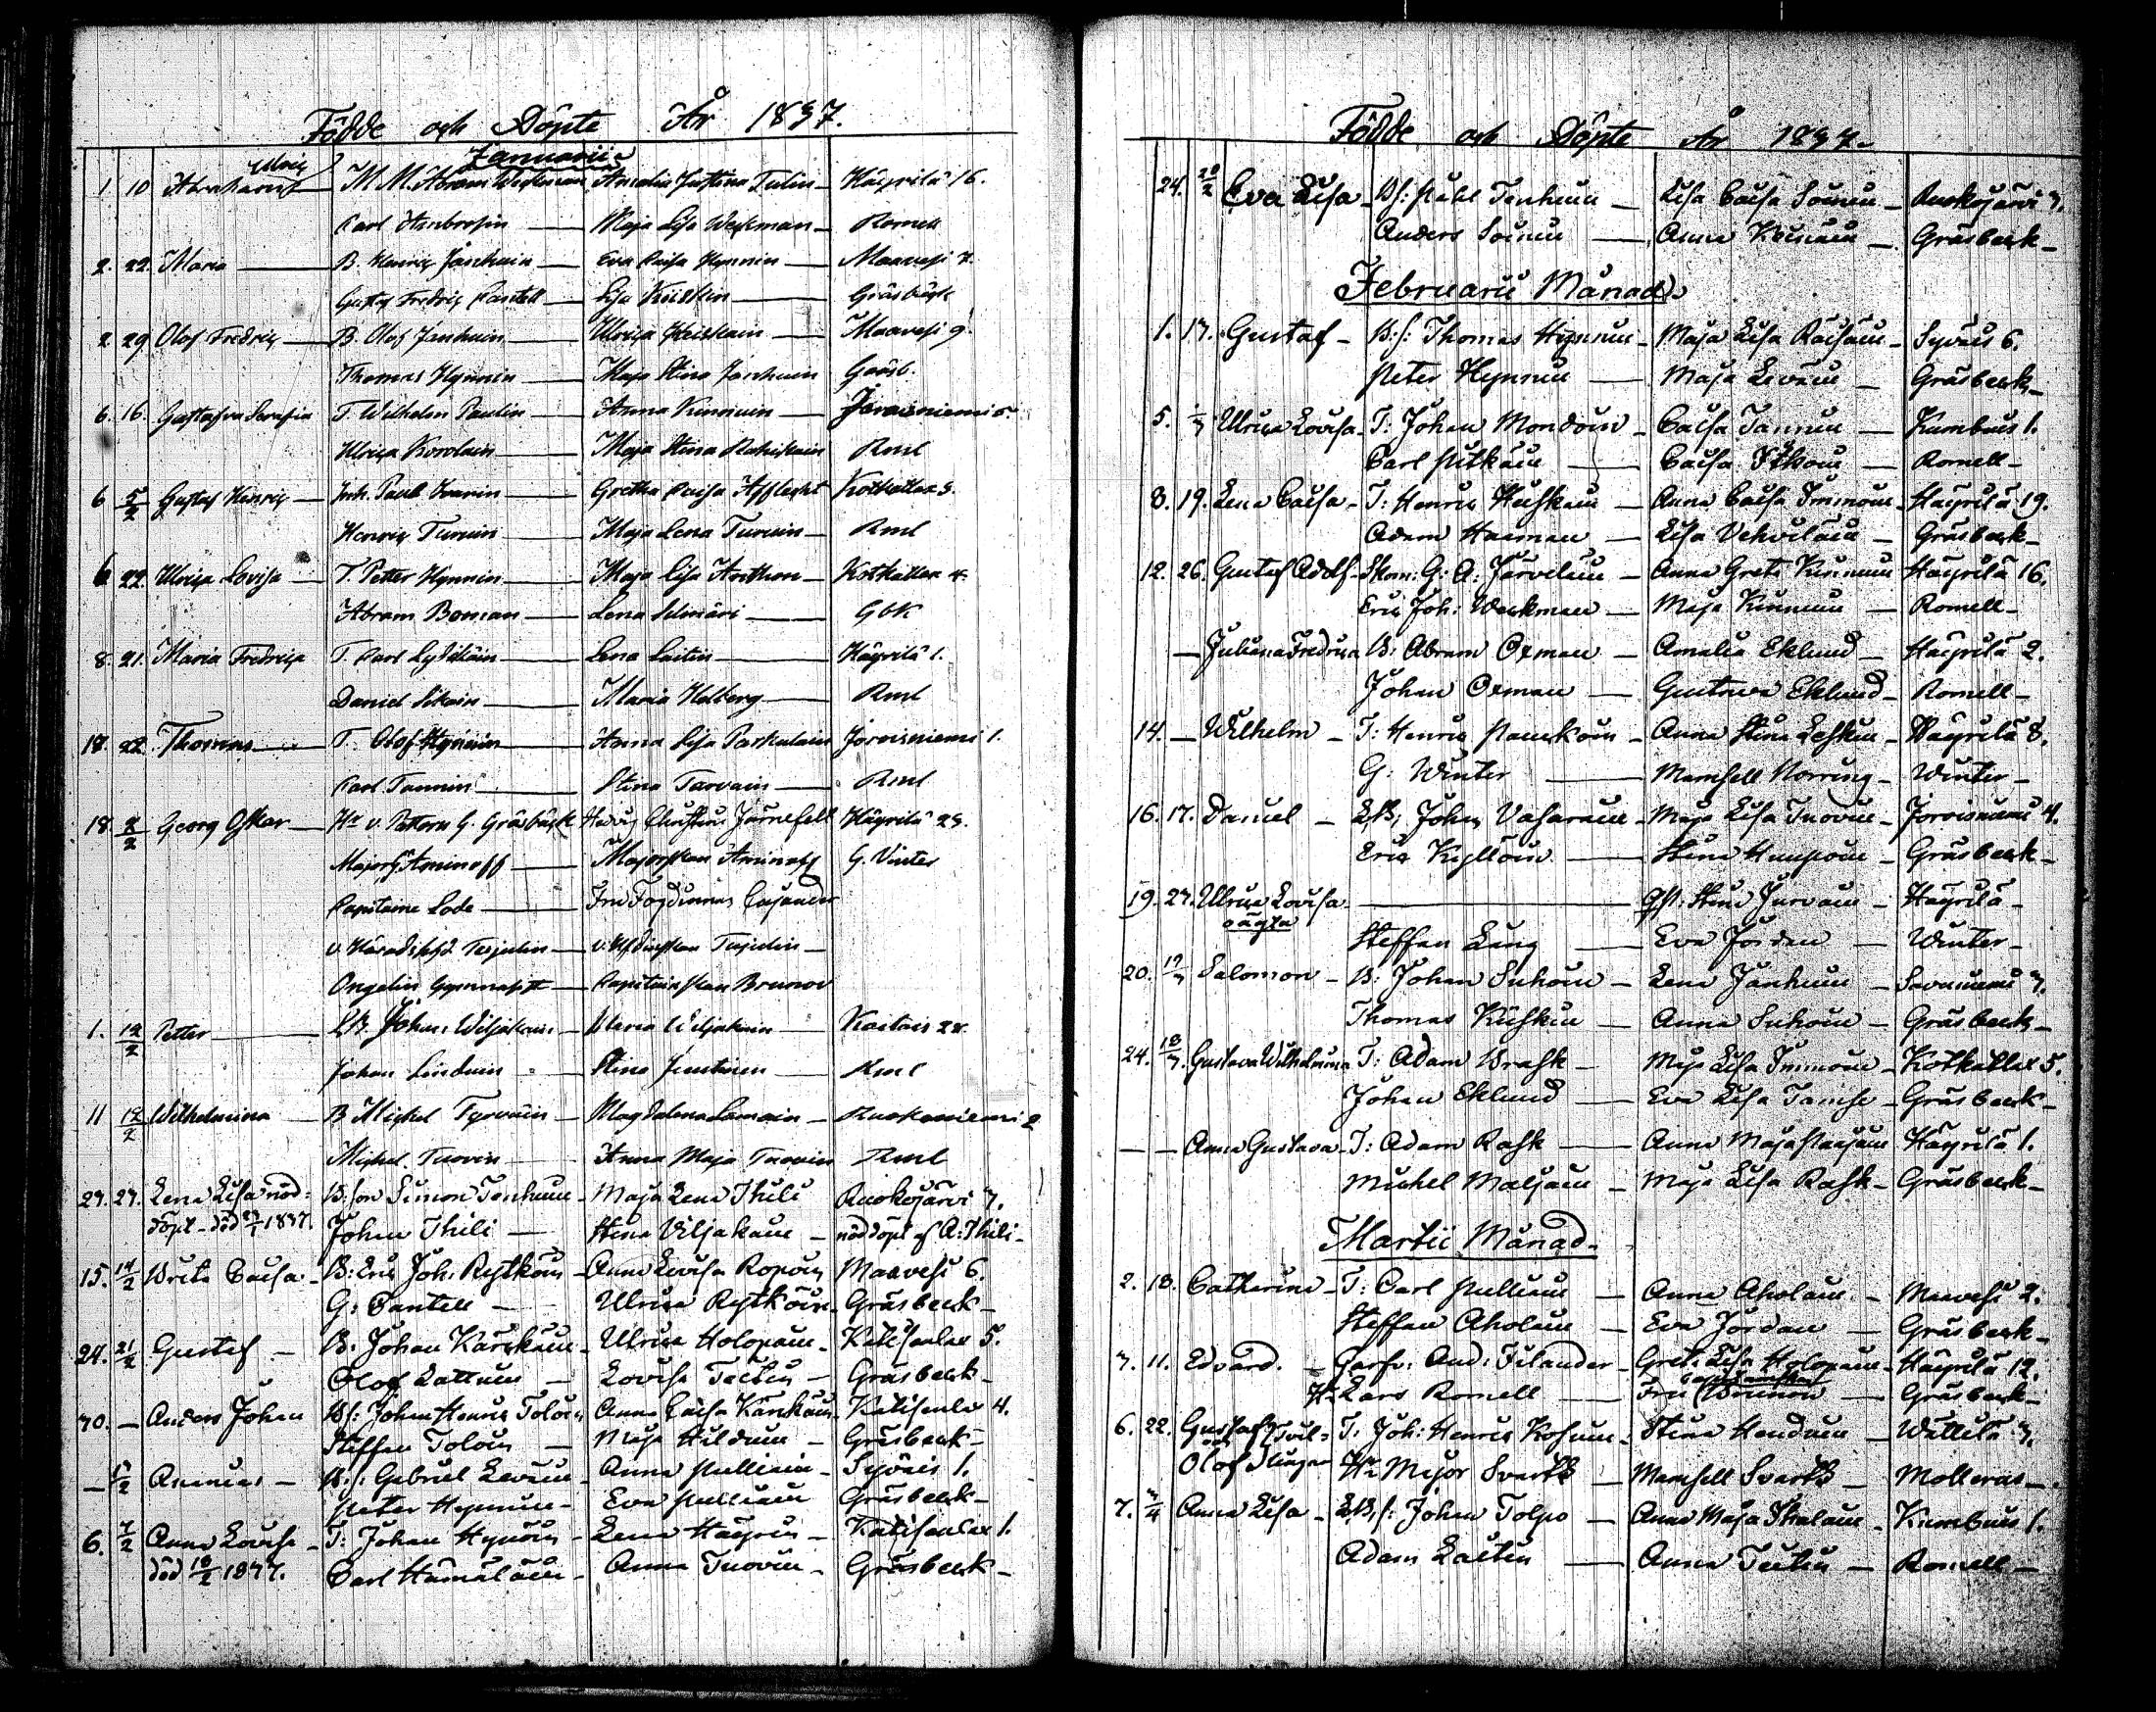 Födde och Döpte År 1837.
Januarii
1. 10 Abraham Ulric M. M. Abram Weckman Amalia Justina Tulin Häyrilä 16.
Carl Ambrosin Maja Lisa Weckman Romell
2. 22. Maria B. Henric Janhuin Eva Caisa Hynnin Maavesi 7.
Gustaf Fredric Cantell Lisa Kiiskin Gräsbäck
2 29 Olof Fredric B. Olof Janhuin Ulrica Heiskain Maavesi 9.
Thomas Hynnin Maja Stina Janhuin Gräsb.
6. 16. Gustafva Serafia T. Wilhelm Paulin Anna Kinnuin Jävaisniemi 5.
Ulrica Korolain Maja Stina Rahikain Rml
6 5/2 Gustaf Henric Inh. Paul Ivanin Gretha Caisa Afflecht Kotkatlax 3.
Henric Turuin Maja Lena Turuin Rml
6 22. Ulrica Lovisa T. Petter Hynnin Maja Lisa Anthon Kotkatlax 4.
Abram Boman Lena Ilmäri GbK
8. 21. Maria Fredrica T. Carl Lydiläin Lena Laitin Häyrilä 1.
Daniel Sikain Maria Holberg Rml
18. 22. Thomas T. Olof Hynnin Anna Lisa Parkulain Jorvisniemi 1.
Carl Tannin Stina Tarvain Rml
18 2/2 Georg Oskar Hr v. Pastorn G. Gräsbäck Hedvig Christina Järnefelt Häyrilä 23.
Major G. Aminoff Majorskan Aminoff G. Vinter
Capitaine Lode Fru Fogdinnan Cajander
v. Häradshöfd. Terjulin v. Hfdingskan Terjulin
Ongelin Gymnasist Capitainskan Brunov
1. 12/2 Petter LB. Johan Wiljakain Maria Wiljakain Kaitais 28.
Johan Linduin Stina Juutinen Rml
11 12/2 Wilhelmina B Michel Tyrväin Magdalena Lamain Ruokoniemi 2
Michel Tuovin Anna Maja Tuovin Rml
27. 27. Lena Lisa nöd= B: son Simon Tenhuin Maja Lena Thili Ruokojärvi 7.
döpt - död 27/1 1837. Johan Thili Stina Viljakain nöddöpt af A: Thili
15. 14/2 Brita Caisa B: Eric Joh: Reftköin Anna Lovisa Ropoin Maavesi 6.
G: Cantell Ulrica Reftköin Gräsbeck
24. 21/2 Gustaf B. Johan Kärckäin Ulrica Holopain Katisenlax 5.
Olof Lattuin Lovisa Teitin Gräsbeck
30. Anders Johan Bs: Johan Henric Toloin Anna Caisa Kärckäin Katisenlax 4.
Steffan Toloin Maja Hilduin Gräsbeck
Ananias B.s: Gabriel Leväin Anna Pulliain Syväis 1.
Peter Hynnin Eva Pulliain Gräsbeck
6. 7/2 Anna Lovisa T: Johan Hynöin Lena Häyrin Katisenlax 1.
död 10/2 1837. Carl Hämäläin Anna Tuovin Gräsbeck
Födde och Döpte År 1837.
24. 28/2 Eva Lisa Bs: Påhl Tenhuin Lisa Caisa Soinin Ruokojärvi 7.
Anders Soinin Anna Koinäin Gräsbeck
Februarii Månad
1. 17. Gustaf B:s: Thomas Hynnin Maja Lisa Räisäin Syväis 6.
Peter Hynnin Maja Leväin Gräsbeck
5. Ulrica Lovisa T: Johan Mondoin Caisa Tannin Kumbuis 1.
Carl Pitkäin Caisa Itkoin Romell
8. 19. Lena Caisa T: Henric Huskain Anna Caisa Immoin Häyrilä 19.
Adam Haiman Lisa Vehviläin Gräsbeck
12. 26. Gustaf Adolf Skom: G: A: Järveläin Anna Greta Kinnuin Häyrilä 16.
Eric Joh: Weckman Maja Kinnuin Romell
Juliana Fredrica B: Abram Oxman Amalia Eklund Häyrilä 2.
Johan Oxman Gustava Eklund Romell
14. Wilhelm T: Henric Paukoin Anna Stina Leskin Häyrilä 8.
G: Winter Mamsell Norring Winter
16. 17. Daniel LB: Johan Vasarain Maja Lisa Tuovin Jorvisniemi 4.
Eric Kyllöin Stina Huupoin Gräsbeck
19. 27. Ulrica Lovisa Qf: Stina Jurvain Häyrilä
oägta Steffan Lång Eva Jordan Winter
20. 19/3 Salomon B: Johan Suhoin Lena Janhuin Savuniemi 7.
Thomas Kiiskin Anna Suhoin Gräsbeck
24. 10/3. Gustava Wilhelmina T: Adam Brask Maja Lisa Immoin Kotkatlax 5.
Johan Eklund Eva Lisa Tanise Gräsbeck
Anna Gustava T: Adam Rask Anna Maja Paajain Häyrilä 1.
Michel Maljain Maja Lisa Rask Gräsbeck
Martii Månad
2. 18. Catharina T: Carl Pulliain Anna Aholain Maavesi 2.
Steffan Aholain Eva Jordan Gräsbeck
3. 11. Edvard. Garfv: And: Filander Greta Lisa Holopain Häyrilä 12.
Hr Lars Romell Fru Capitainskan Brunow Gräsbeck
6. 22. Gustaf Tvil= T. Joh: Henric Kosuin Stina Hendrin Wättilä 3.
och Olof lingar Hr Major Svartz Mamsell Svartz Molterus
7. 3/4 Anna Lisa LB,s: Johan Tolpo Anna Maja Ihalain Kumbuis 1.
Adam Laitin Anna Teitin Romell